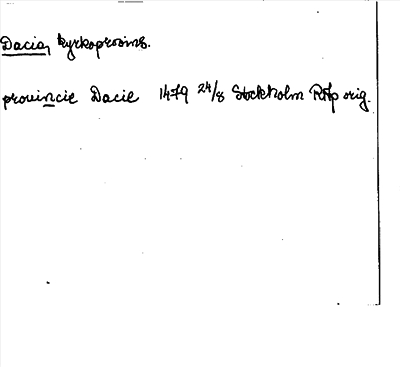 Dacia, kyrkoprovins.
provincie Dacie 1479 24/8 Stockholm RAp orig.